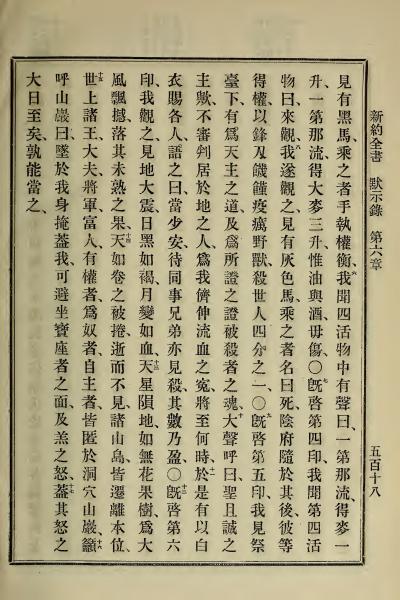 新約全書　默示錄　第六章　五百十八
見有黑馬、乘之者手執權衡、六我聞四活物中有聲曰、一第那流、得麥一
升、一第那流、得大麥三升、惟油與酒毋傷、○七旣啓第四印、我聞第四活
物曰、來觀、八我遂觀之、見有灰色馬、乘之者名曰死、陰府隨於其後、彼等
得權、以鋒刃饑饉疫癘野獸、殺世人四分之一、○九旣啓第五印、我見祭
臺下有爲天主之道、及爲所證之證被殺者之魂、十大聲呼曰、聖且誠之
主歟、不審判居於地之人、爲我儕伸流血之寃、將至何時、十一於是有以白
衣賜各人、語之曰、當少安、待同事兄弟亦見殺、其數乃盈、○十二旣啓第六
印、我觀之、見地大震、日黑如褐、月變如血、十三天星隕地、如無花果樹爲大
風飄撼、落其未熟之果、十四天如卷之被捲、逝而不見、諸山島皆遷離本位、
十五世上諸王大夫將軍富人有權者、爲奴者自主者、皆匿於洞穴山巖、十六籲
呼山巖曰、墜於我身、掩蓋我、可避坐寶座者之面、及羔之怒、十七蓋其怒之
大日至矣、孰能當之、